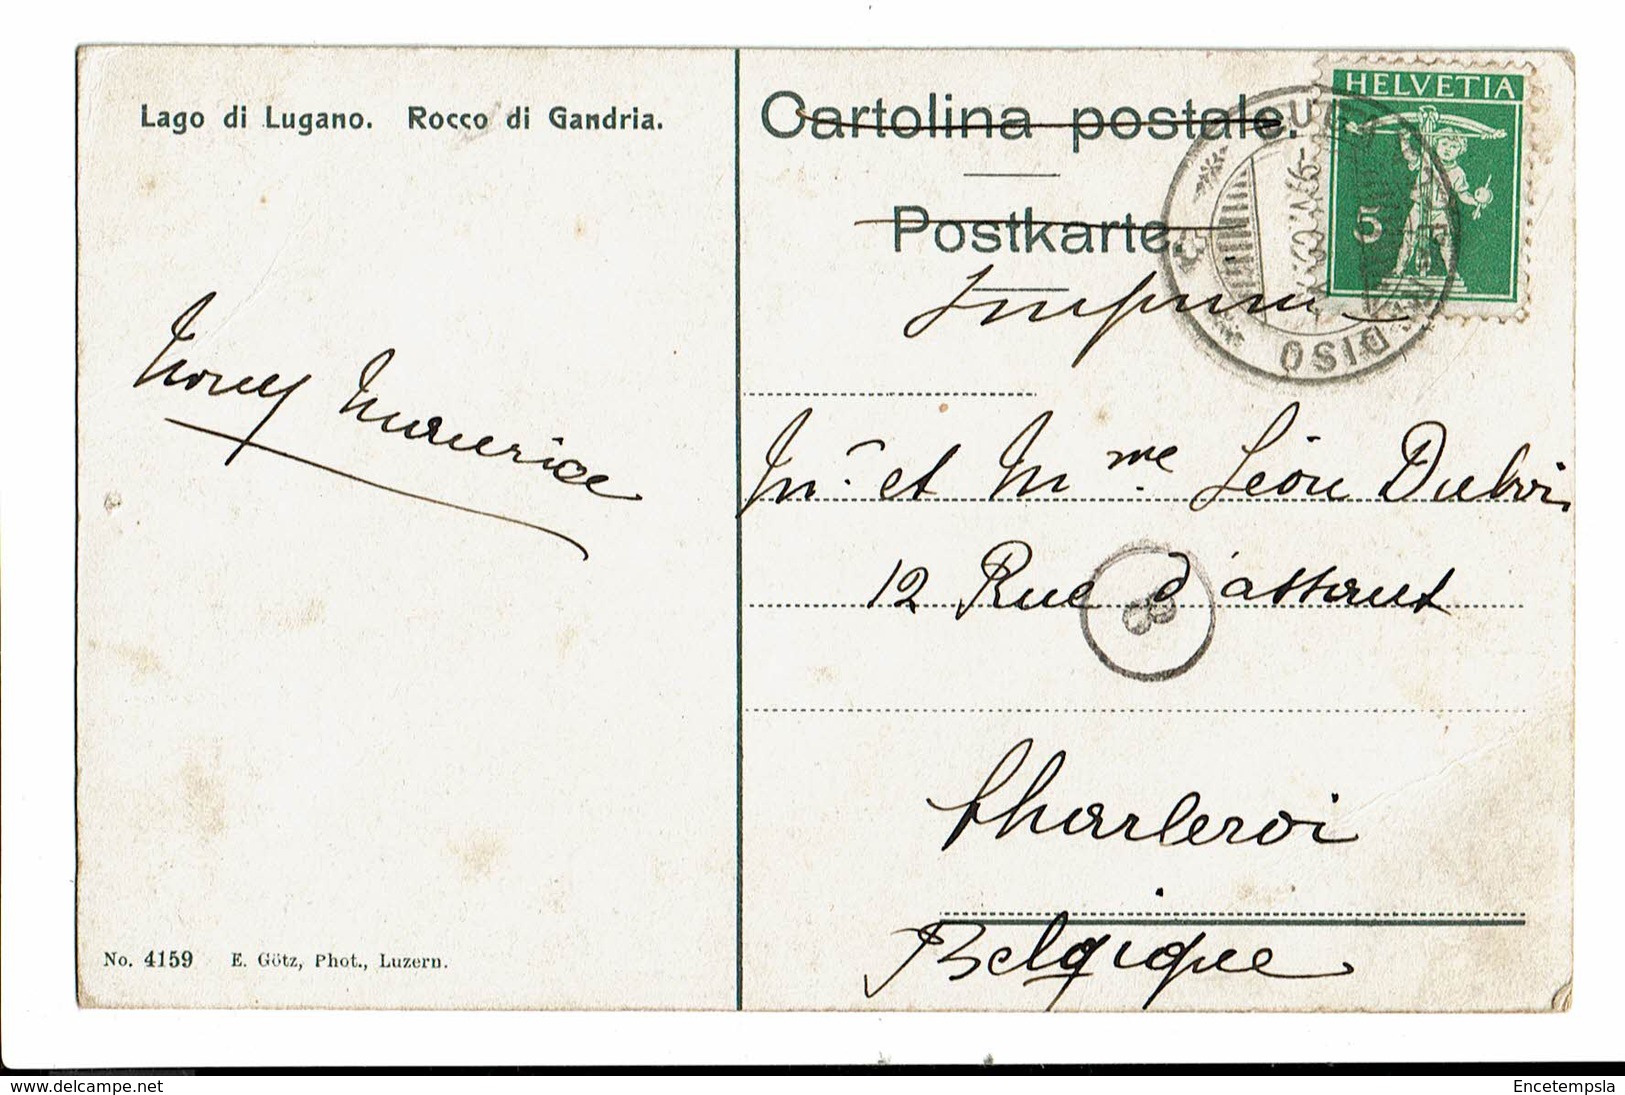 Lago di Lugano. Rocco di Gandria.
Cartolina postale.
Postkarte.
HELVETIA
5
DISO
Maurice
Mr. et Mme. Léon Dubois
12 Rue d'assaut
Charleroi
Belgique
No. 4159 E. Götz, Phot., Luzern.
www.delcampe.net
Encetempsla